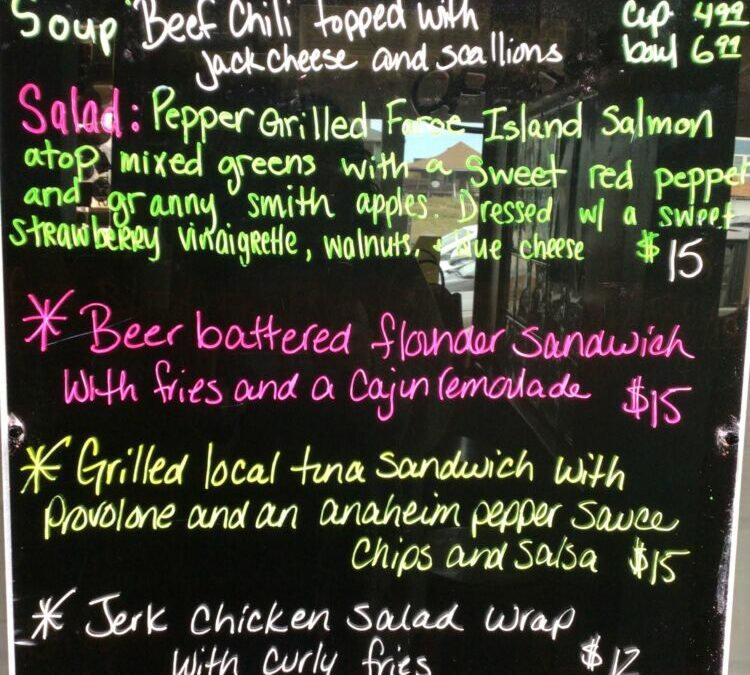 Soup Beef Chili topped with cup 4.99
jack cheese and scallions bowl 6.99
Salad: Pepper Grilled Faroe Island Salmon
atop mixed greens with a sweet red pepper
and granny smith apples. Dressed w/ a sweet
strawberry vinaigrette, walnuts, + blue cheese $15
* Beer battered flounder sandwich
with fries and a Cajun remoulade $15
* Grilled local tuna sandwich with
provolone and an anaheim pepper sauce
Chips and salsa $15
* Jerk chicken salad wrap
with curly fries $12